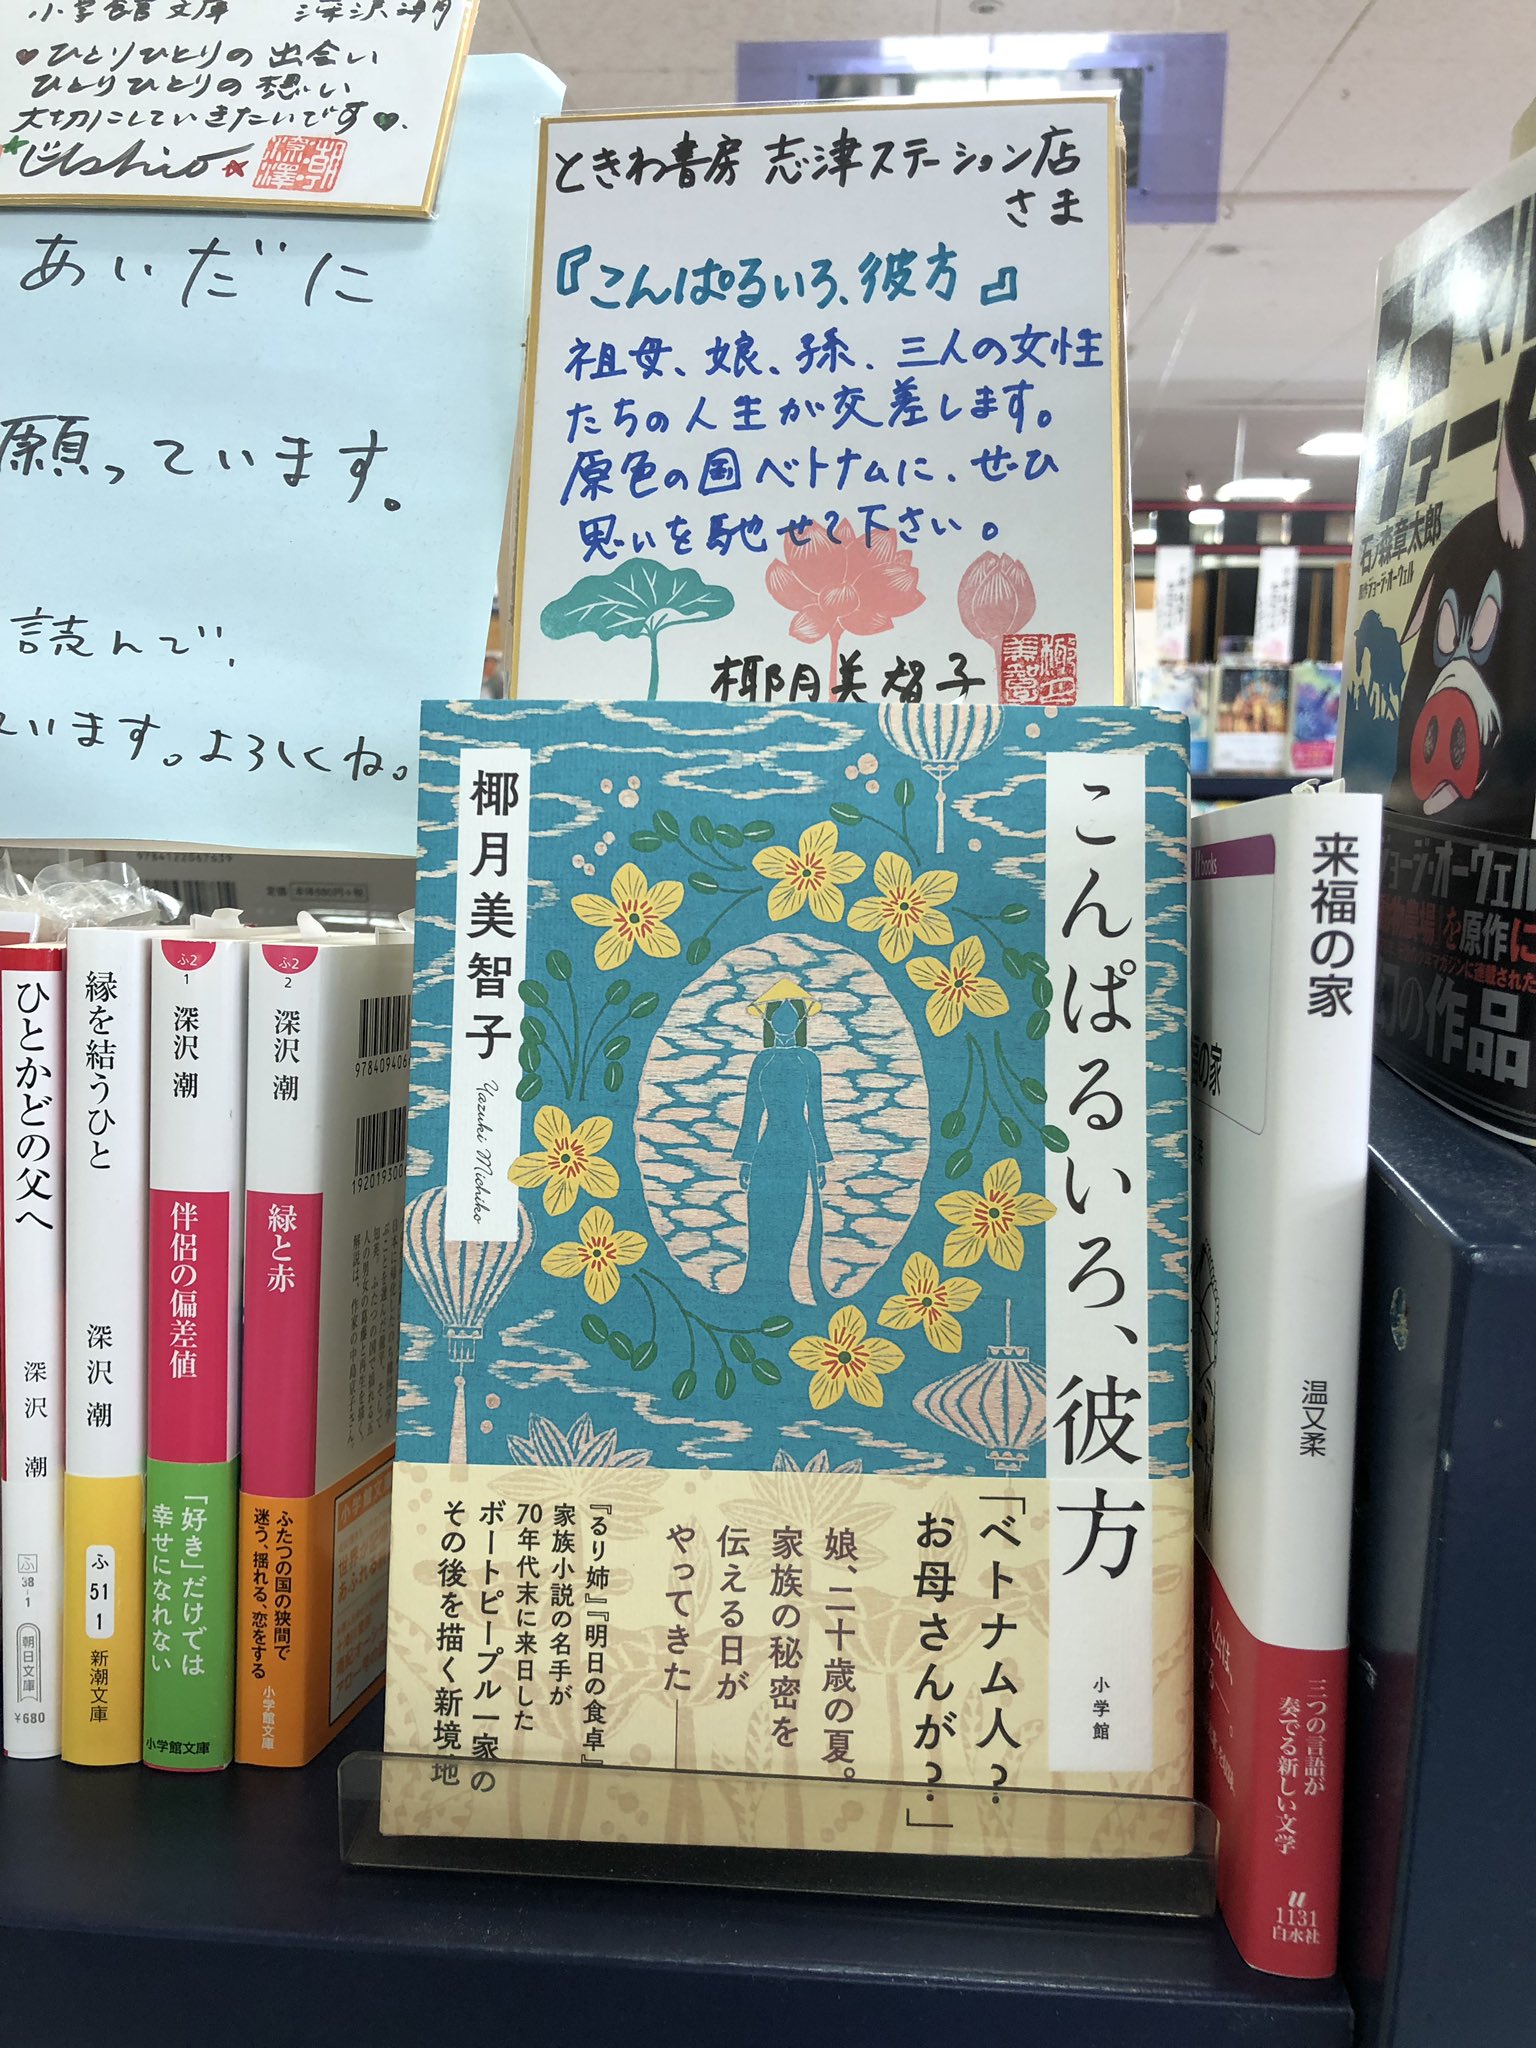 小学館文庫 深沢潮
♥ひとりひとりの出会い
ひとりひとりの想い
大切にしていきたいです♥.
Ushio
深澤潮
あいだに
願っています。
読んで、
ています。よろしくね。
ときわ書房 志津ステーション店
さま
『こんぱるいろ、彼方』
祖母、娘、孫、三人の女性
たちの人生が交差します。
原色の国ベトナムに、ぜひ
思いを馳せて下さい。
椰月美智子
こんぱるいろ、彼方
椰月美智子
Yazuki Michiko
小学館
「ベトナム人?
お母さんが?」
娘、二十歳の夏。
家族の秘密を
伝える日が
やってきた――
『るり姉』『明日の食卓』
家族小説の名手が
70年代末に来日した
ボートピープル一家の
その後を描く新境地
ひとかどの父へ
深沢 潮
ふ
38
1
朝日文庫
¥680
縁を結うひと
深沢 潮
ふ
51
1
新潮文庫
ふ2
1
深沢 潮
伴侶の偏差値
「好き」だけでは
幸せになれない
小学館文庫
ふ2
2
深沢 潮
緑と赤
ふたつの国の狭間で
迷う、揺れる、恋をする
小学館文庫
9784122067639
定価 本体680円+税
books
来福の家
温又柔
三つの言語が
奏でる新しい文学
u
1131
白水社
石ノ森章太郎
原作 ジョージ・オーウェル
ジョージ・オーウェル
を原作に
の作品